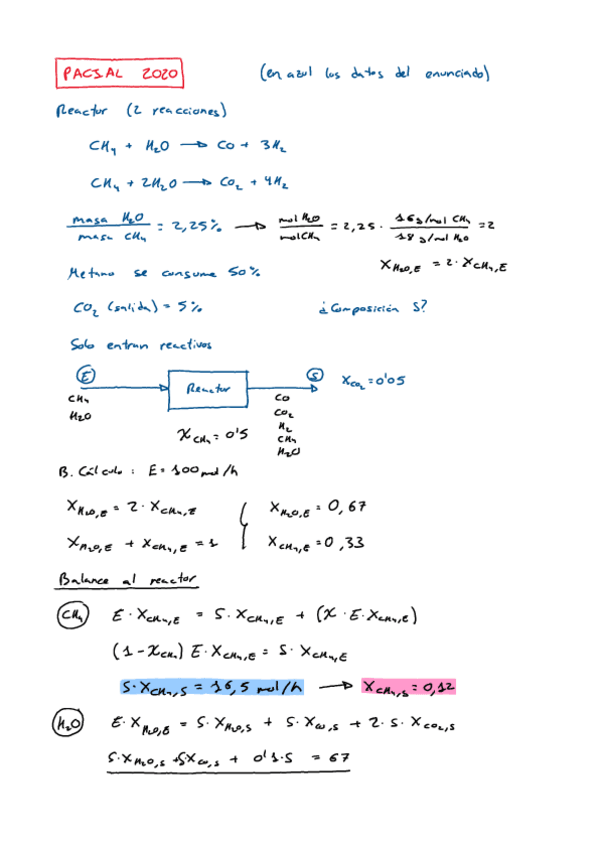 PACIAL 2020 (en azul los datos del enunciado)
Reactor (2 reacciones)
CH₄ + H₂O → CO + 3H₂
CH₄ + 2H₂O → CO₂ + 4H₂
masa H₂O / masa CH₄ = 2,25% → mol H₂O / mol CH₄ = 2,25 · 16 g/mol CH₄ / 18 g/mol H₂O = 2
Metano se consume 50% X_H₂O,E = 2 · X_CH₄,E
CO₂ (salida) = 5% ¿Composición S?
Solo entran reactivos
E Reactor S X_CO₂ = 0'05
CH₄ CO
H₂O CO₂
H₂
X_CH₄ = 0'5 CH₄
H₂O
B. Cálculo : E = 100 mol/h
X_H₂O,E = 2 · X_CH₄,E X_H₂O,E = 0,67
X_H₂O,E + X_CH₄,E = 1 X_CH₄,E = 0,33
Balance al reactor
CH₄ E · X_CH₄,E = S · X_CH₄,E + (X · E · X_CH₄,E)
(1 - X_CH₄) E · X_CH₄,E = S · X_CH₄,E
S · X_CH₄,S = 16,5 mol/h → X_CH₄,S = 0,12
H₂O E · X_H₂O,E = S · X_H₂O,S + S · X_CO,S + 2 · S · X_CO₂,S
S · X_H₂O,S + S X_CO,S + 0'1 · S = 67